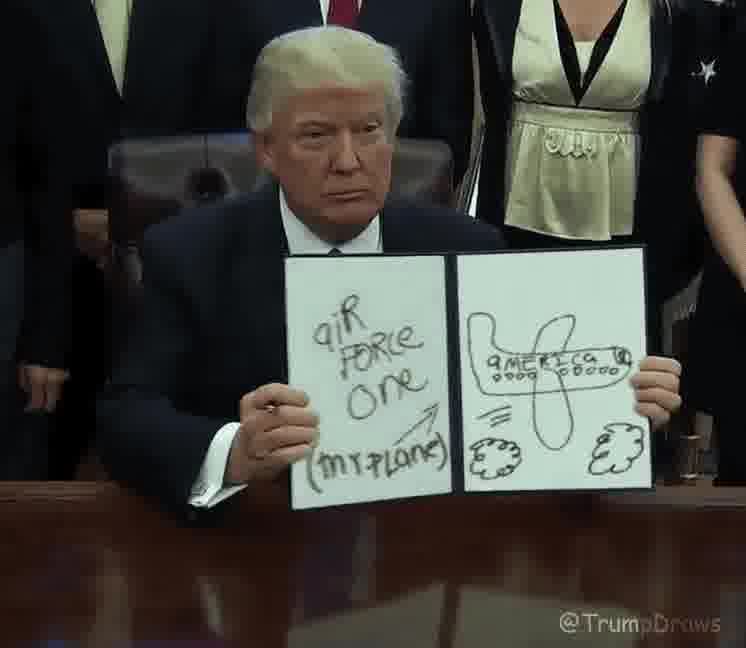 aiR
FORCE
one
(mr.PLane)
aMERICa
@TrumpDraws